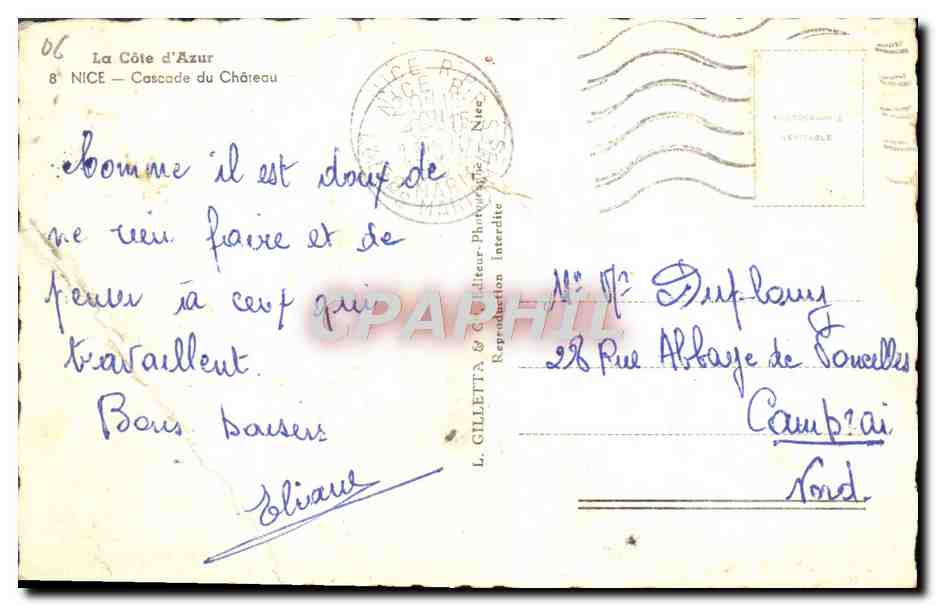 06
La Côte d'Azur
8 NICE — Cascade du Château
Comme il est doux de
ne rien faire et de
penser à ceux qui
travaillent.
Bons baisers
Eliane
L. GILLETTA & Cie, Editeur-Photographe, Nice
Reproduction Interdite
NICE R.P.
PHOTOGRAPHIE
VERITABLE
Mr Mme Duflouy
28 Rue Abbaye de Vancelles
Cambrai
Nord.
CPAPHIL